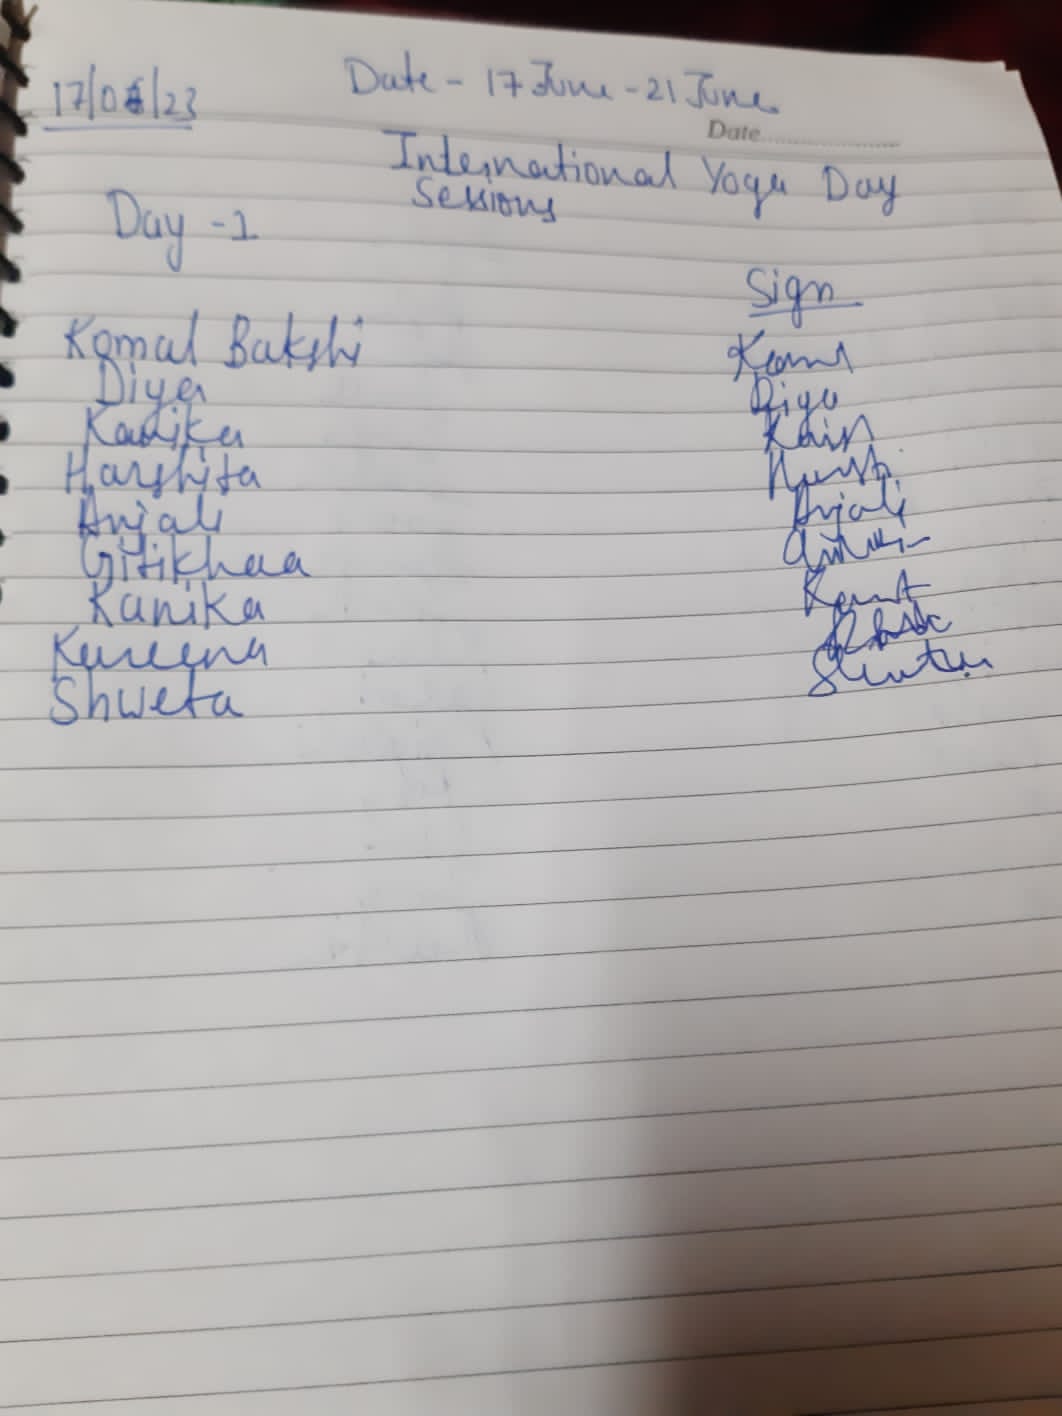 17/06/23
Date - 17 June - 21 June
Date
International Yoga Day
Sessions
Day - 1
Sign
Komal Bakshi
Diya Diya
Kanika
Harshita
Anjali Anjali
Gitikhaa
Kanika
Kareena
Shweta